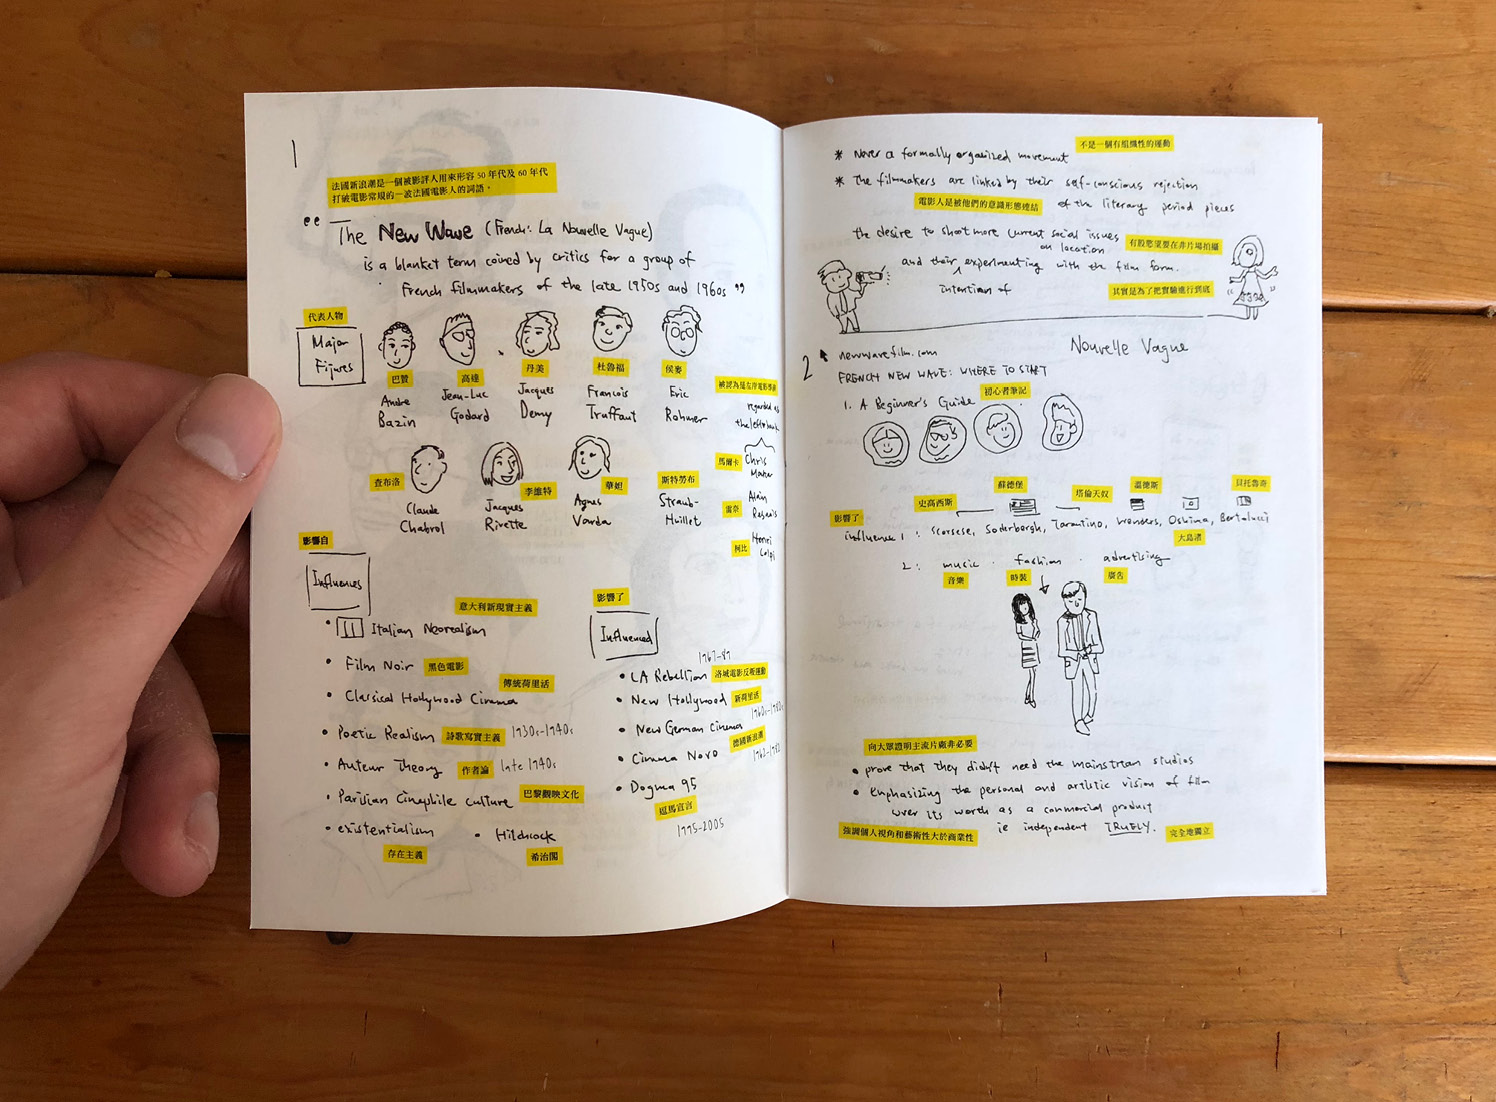 1
法國新浪潮是一個被影評人用來形容 50 年代及 60 年代
打破電影常規的一波法國電影人的詞語。
"The New Wave (French: La Nouvelle Vague)
is a blanket term coined by critics for a group of
French filmmakers of the late 1950s and 1960s"
代表人物
Major
Figures
巴贊
Andre
Bazin
高達
Jean-Luc
Godard
丹美
Jacques
Demy
杜魯福
Francois
Truffaut
侯麥
Eric
Rohmer
被認為是左岸電影學派
regarded as
the left bank
查布洛
Claude
Chabrol
李維特
Jacques
Rivette
華妲
Agnes
Varda
斯特勞布
Straub-
Huillet
馬爾卡
Chris
Marker
雷奈
Alain
Resnais
柯比
Henri
Colpi
影響自
Influences
意大利新現實主義
• Italian Neorealism
• Film Noir 黑色電影
傳統荷里活
• Classical Hollywood Cinema
• Poetic Realism 詩歌寫實主義 1930s-1940s
• Auteur Theory 作者論 late 1940s
• Parisian Cinephile culture 巴黎觀映文化
• existentialism
存在主義
• Hitchcock
希治閣
影響了
Influenced
1967-89
• LA Rebellion 洛城電影反叛運動
• New Hollywood 新荷里活
1960s-1980s
• New German Cinema
德國新浪潮
1962-1982
• Cinema Novo
• Dogma 95
逗馬宣言
1995-2005
不是一個有組織性的運動
* Never a formally organized movement
* The filmmakers are linked by their self-conscious rejection
電影人是被他們的意識形態連結 of the literary period pieces
the desire to shoot more current social issues
on location
有股慾望要在非片場拍攝
and their experimenting with the film form.
intention of
其實是為了把實驗進行到底
2
newwavefilm.com
Nouvelle Vague
FRENCH NEW WAVE: WHERE TO START
1. A Beginner's Guide 初心者筆記
影響了
史高西斯
蘇德堡
塔倫天奴
溫德斯
貝托魯奇
influence 1 : Scorsese, Soderbergh, Tarantino, Wenders, Oshima, Bertolucci
大島渚
2 : music · fashion · advertising
音樂
時裝
廣告
向大眾證明主流片廠非必要
• prove that they didn't need the mainstream studios
• Emphasizing the personal and artistic vision of film
over its worth as a commercial product
強調個人視角和藝術性大於商業性
ie independent TRUELY.
完全地獨立